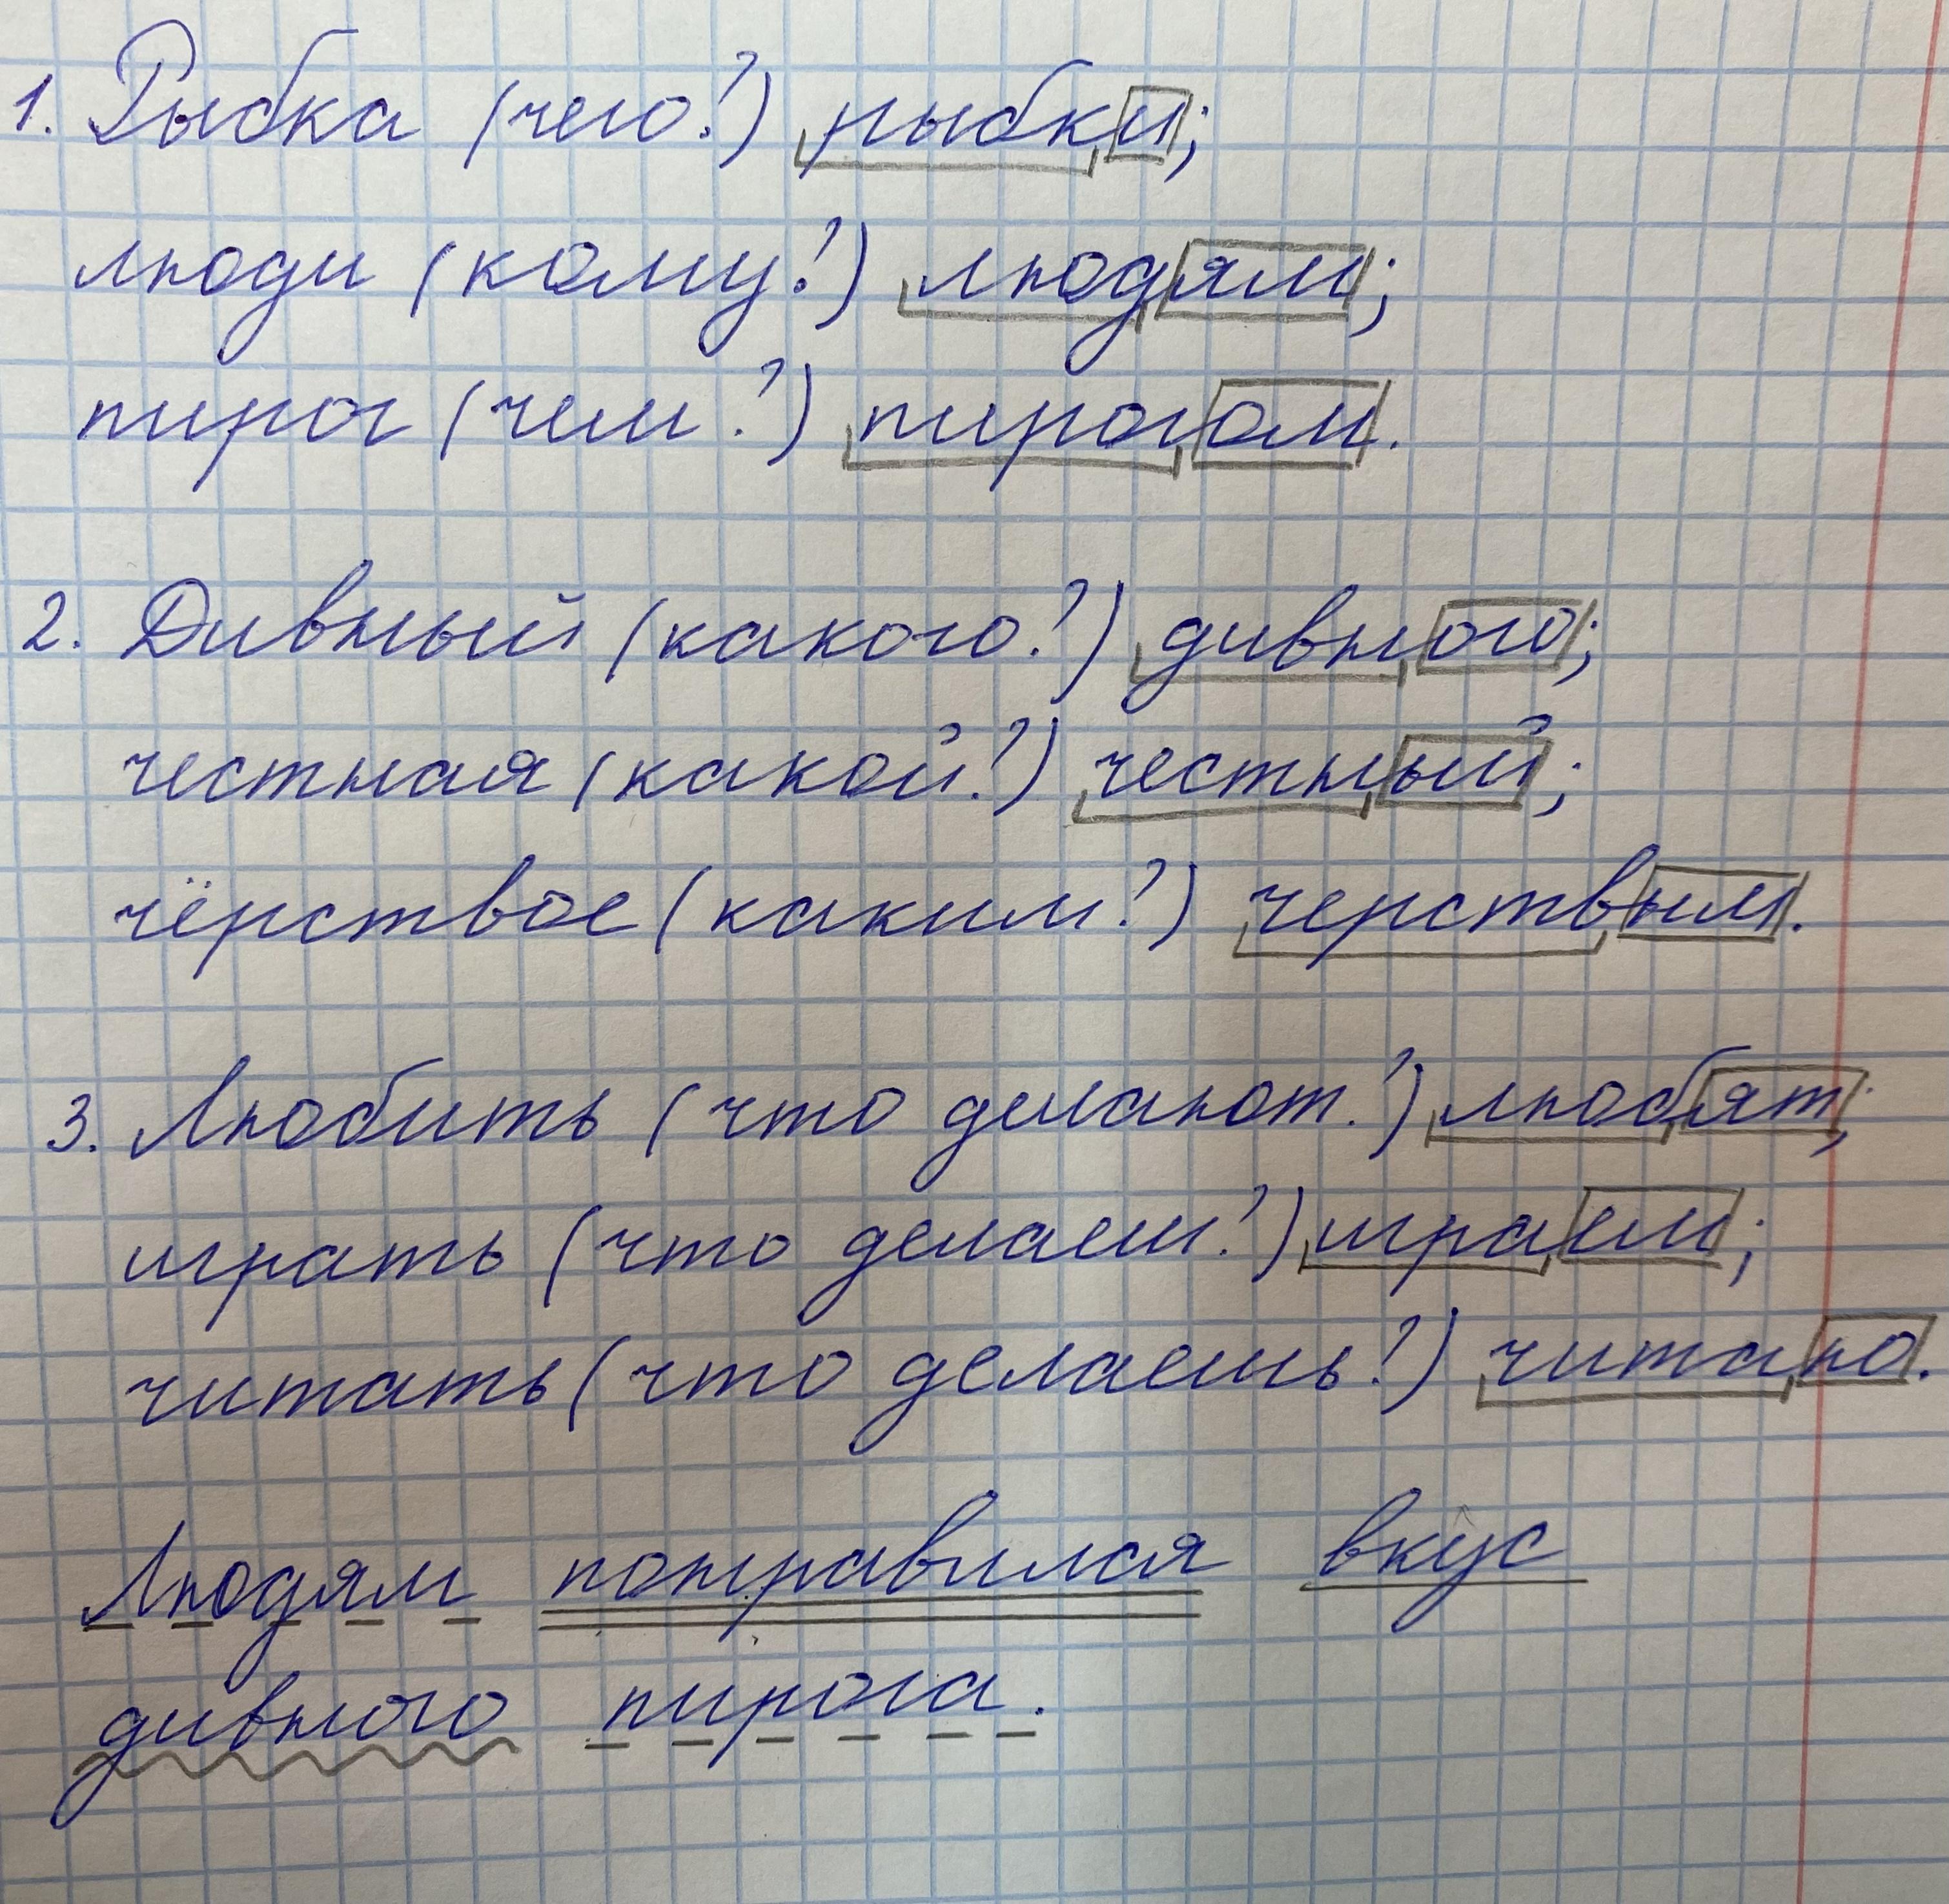 1. Рыбка (чего?) рыбки;
люди (кому?) людям;
пирог (чем?) пирогом.
2. Дивный (какого?) дивного;
честная (какой?) честный;
чёрствое (каким?) черствым.
3. Любить (что делают?) любят;
играть (что делаем?) играем;
читать (что делаешь?) читаю.
Людям понравился вкус
дивного пирога.